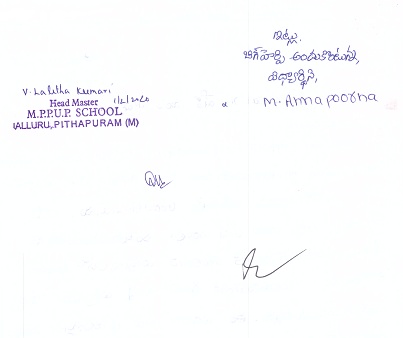 ఇట్లు.
బిగ్ హెల్ప్ అందుకుంటున్న
విద్యార్థిని,
M. Annapoorna
V. Lalitha Kumari
Head Master 1/2/2020
M.P.P.U.P. SCHOOL
ALLURU, PITHAPURAM (M)